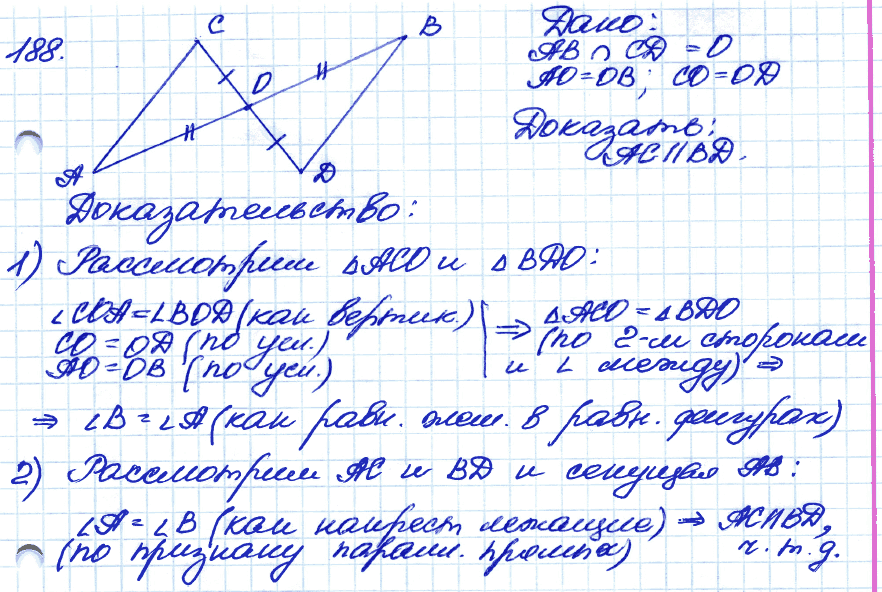 188.
C
B
O
A
D
Дано:
AB ∩ CD = O
AO = OB; CO = OD
Доказать:
AC || BD.
Доказательство:
1) Рассмотрим △ACO и △BDO:
∠COA = ∠BOD (как вертик.)
CO = OD (по усл.)
AO = OB (по усл.)
⇒ △ACO = △BDO
(по 2-м сторонам
и ∠ между) ⇒
⇒ ∠B = ∠A (как равн. элем. в равн. фигурах)
2) Рассмотрим AC и BD и секущая AB:
∠A = ∠B (как накрест лежащие) ⇒ AC || BD,
(по признаку паралл. прямых) ч.т.д.